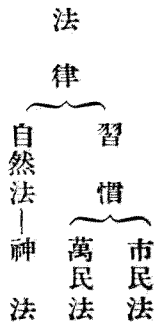 法律
習慣
市民法
萬民法
自然法—神法